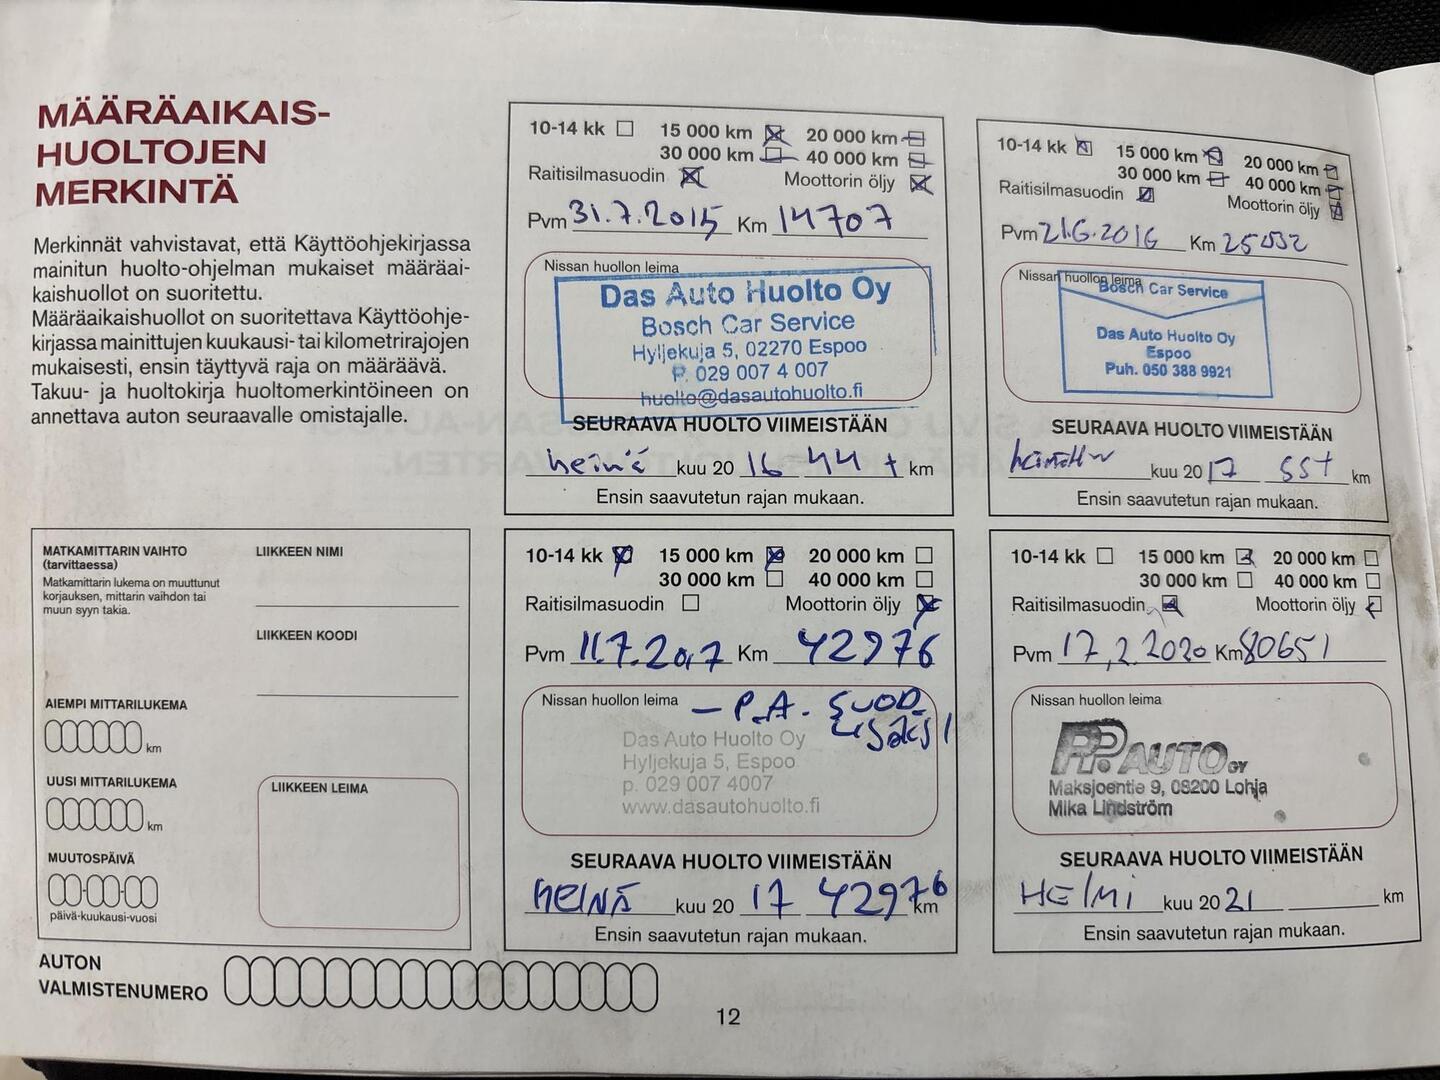 MÄÄRÄAIKAIS-
HUOLTOJEN
MERKINTÄ
Merkinnät vahvistavat, että Käyttöohjekirjassa
mainitun huolto-ohjelman mukaiset määräai-
kaishuollot on suoritettu.
Määräaikaishuollot on suoritettava Käyttöohje-
kirjassa mainittujen kuukausi- tai kilometrirajojen
mukaisesti, ensin täyttyvä raja on määräävä.
Takuu- ja huoltokirja huoltomerkintöineen on
annettava auton seuraavalle omistajalle.
10-14 kk 15 000 km 20 000 km
30 000 km 40 000 km
Raitisilmasuodin Moottorin öljy
Pvm 31.7.2015 Km 14707
Nissan huollon leima
Das Auto Huolto Oy
Bosch Car Service
Hyljekuja 5, 02270 Espoo
P. 029 007 4 007
huolto@dasautohuolto.fi
SEURAAVA HUOLTO VIIMEISTÄÄN
heinä kuu 20 16 44 t km
Ensin saavutetun rajan mukaan.
10-14 kk 15 000 km 20 000 km
30 000 km 40 000 km
Raitisilmasuodin Moottorin öljy
Pvm 21.6.2016 Km
Nissan huollon leima
Bosch Car Service
Das Auto Huolto Oy
Espoo
Puh. 050 388 9921
SEURAAVA HUOLTO VIIMEISTÄÄN
kuu 20 17 55t km
Ensin saavutetun rajan mukaan.
MATKAMITTARIN VAIHTO
(tarvittaessa)
Matkamittarin lukema on muuttunut
korjauksen, mittarin vaihdon tai
muun syyn takia.
LIIKKEEN NIMI
LIIKKEEN KOODI
AIEMPI MITTARILUKEMA
km
UUSI MITTARILUKEMA
km
MUUTOSPÄIVÄ
päivä-kuukausi-vuosi
LIIKKEEN LEIMA
10-14 kk 15 000 km 20 000 km
30 000 km 40 000 km
Raitisilmasuodin Moottorin öljy
Pvm 11.7.2017 Km 42976
Nissan huollon leima
– P.A. SUOD.
Das Auto Huolto Oy
Hyljekuja 5, Espoo
p. 029 007 4007
www.dasautohuolto.fi
SEURAAVA HUOLTO VIIMEISTÄÄN
HEINÄ kuu 20 17 42976 km
Ensin saavutetun rajan mukaan.
10-14 kk 15 000 km 20 000 km
30 000 km 40 000 km
Raitisilmasuodin Moottorin öljy
Pvm 17.2.2020 Km 80651
Nissan huollon leima
P.P. AUTO OY
Maksjoentie 9, 08200 Lohja
Mika Lindström
SEURAAVA HUOLTO VIIMEISTÄÄN
HELMI kuu 20 21 km
Ensin saavutetun rajan mukaan.
AUTON
VALMISTENUMERO
12